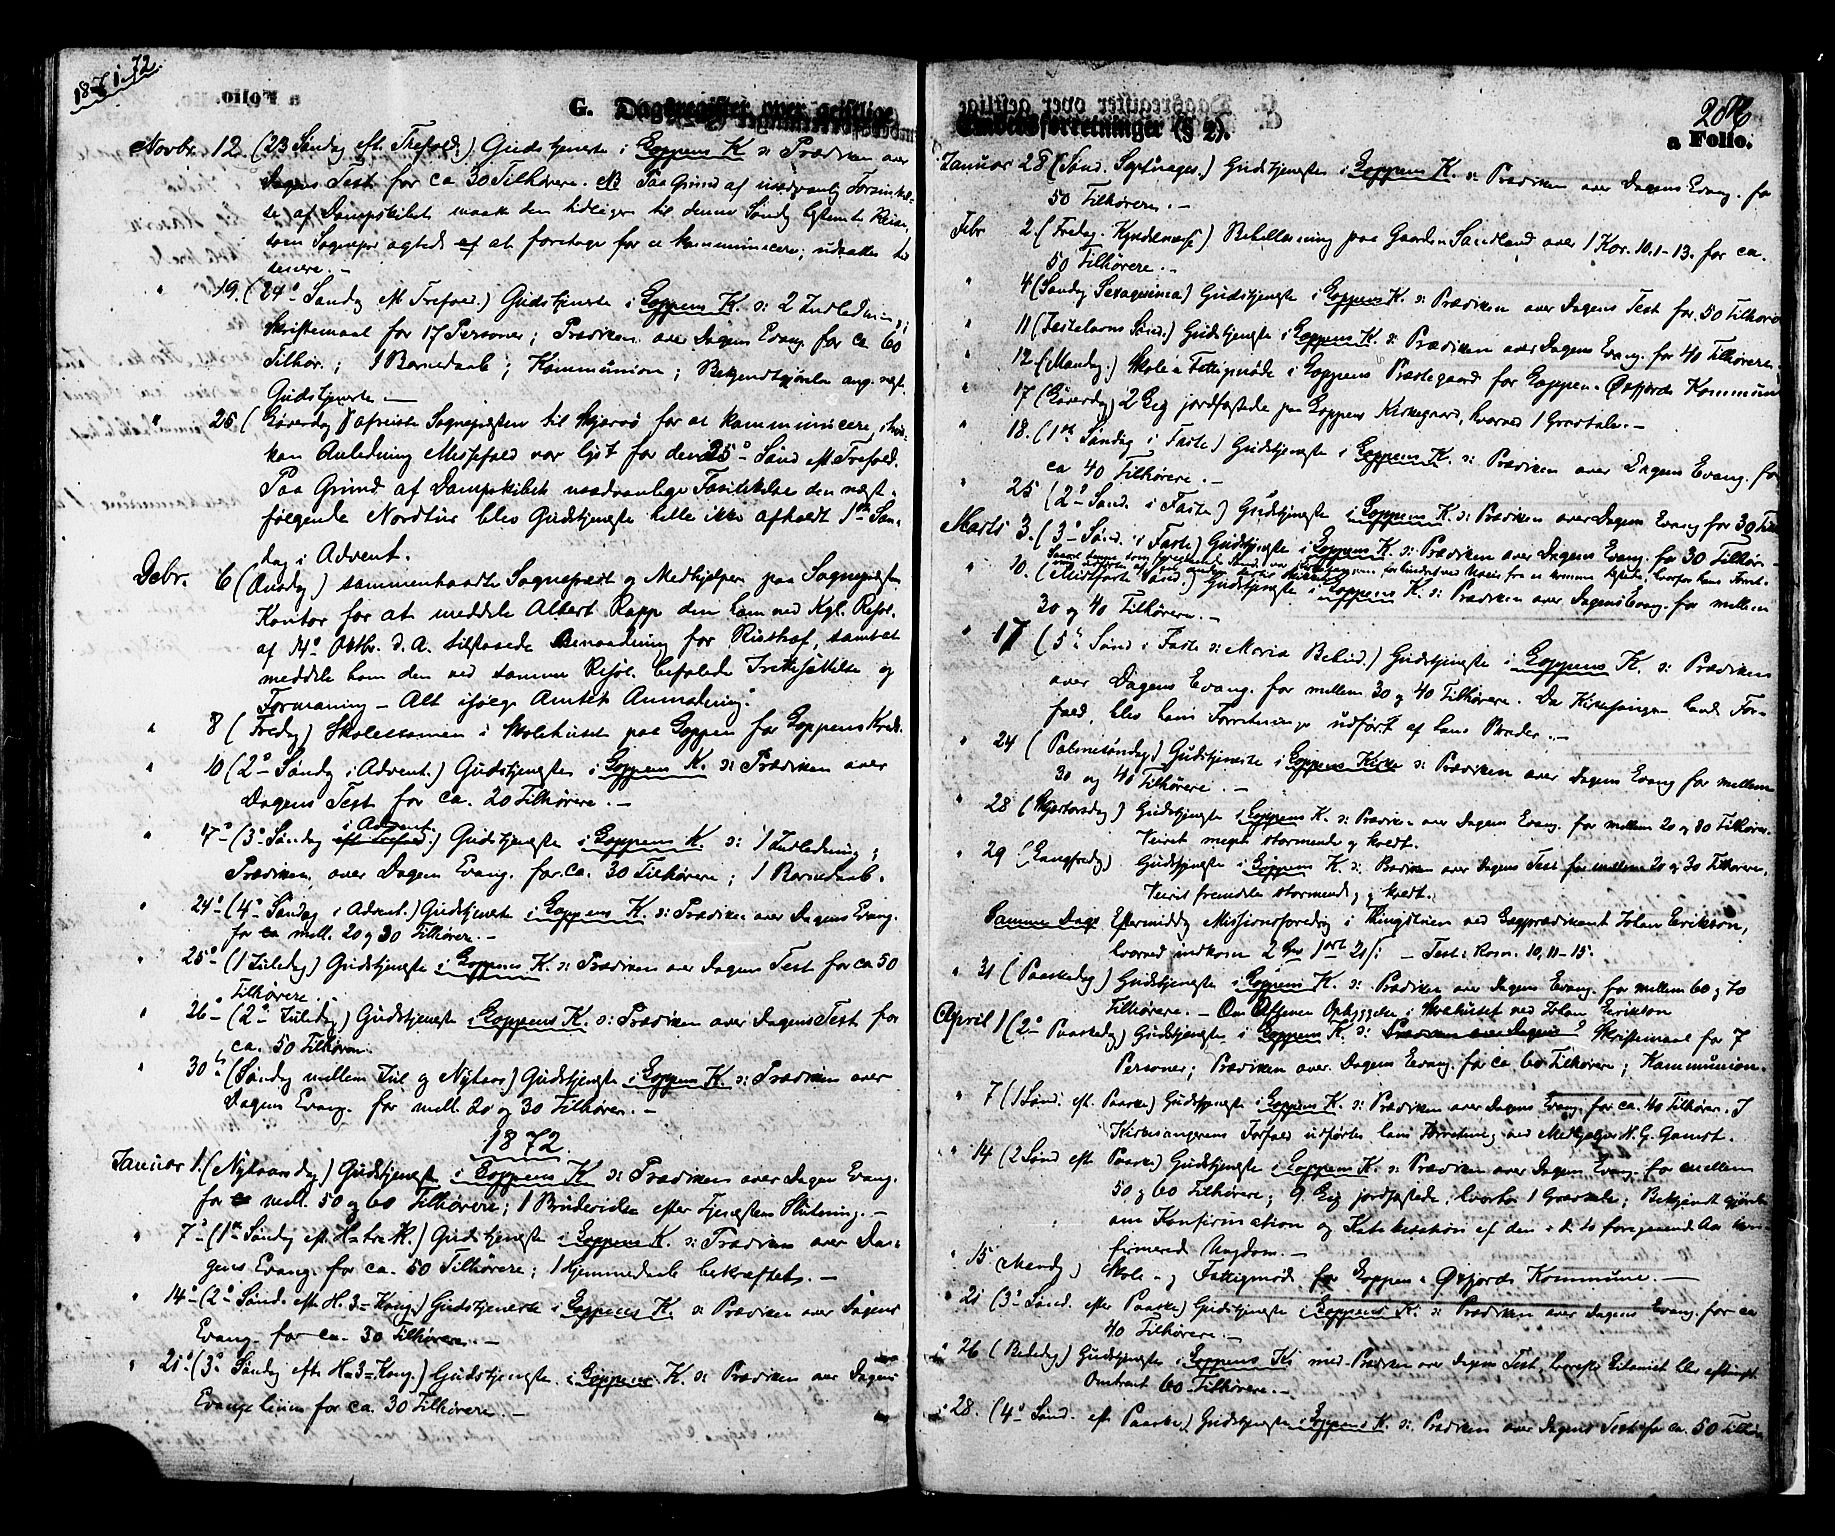 1871-72.
a Folio.
G. Dagsregister over geistlige
Novbr. 12. (23 Søndag eft. Trefold.) Gudstjeneste i Loppens K. ɔ: Prædiken over
Dagens Text for ca 30 Tilhørere. NB Paa Grund af usædvanlig Forsinkel-
se af Dampskibet maatte den tidligere til denne Søndag bestemte Reise,
som Sognepr. agtede at foretage for at kommunicere, udsættes til
senere. —
" 19. (24de Søndag eft. Trefold.) Gudstjeneste i Loppens K. ɔ: 2 Indledning;
Skriftemaal for 17 Personer; Prædiken over Dagens Evang. for ca 60
Tilhør.; 1 Barnedaab; Kommunion; Bekjendtgjørelse ang. næst.
Gudstjeneste. —
" 25 (Løverdag) afreiste Sognepræsten til Skjervø for at kommunicere, i hvil-
ken Anledning Messefald var lyst for den 25de Sønd. eft. Trefold.
Paa Grund af Dampskibets usædvanlige Forsinkelse den næst-
følgende Nordtur blev Gudstjeneste heller ikke afholdt 1ste Søn-
dag i Advent.
Debr. 6 (Onsdag) sammenkaldte Sognepræst og Medhjelpere paa Sognepræstens
Kontor for at meddele Albert Rapp den ham ved Kgl. Resol.
af 14de Oktbr. d. A. tilstaaede Benaadning for Risstraf, samt at
meddele ham den ved samme Resol. befalede Irettesættelse og
Formaning — Alt ifølge Amtets Anmodning.
" 8 (Fredag) Skoleexamen i Skolehuset paa Loppen for Loppens Kreds.
" 10 (2den Søndag i Advent.) Gudstjeneste i Loppens K. ɔ: Prædiken over
Dagens Text for ca. 20 Tilhørere. —
i Advent.
" 17de (3de Søndag eft. Trefold.) Gudstjeneste i Loppens K. ɔ: 1 Indledning;
Prædiken over Dagens Evang. for ca. 30 Tilhørere; 1 Barnedaab.
" 24de (4de Søndag i Advent.) Gudstjeneste i Loppens K. ɔ: Prædiken over Dagens Evang.
for ca mell. 20 og 30 Tilhørere. —
" 25de (1 Juledag) Gudstjeneste i Loppens K. ɔ: Prædiken over Dagens Text for ca 50
Tilhørere. —
" 26de (2den Juledag) Gudstjeneste i Loppens K. ɔ: Prædiken over Dagens Text for
ca. 50 Tilhørere.
" 30 (Søndag mellem Jul og Nytaar) Gudstjeneste i Loppens K. ɔ: Prædiken over
Dagens Evang. for mell. 20 og 30 Tilhører. —
1872.
Januar 1. (Nytaarsdag) Gudstjeneste i Loppens K. ɔ: Prædiken over Dagen Evang.
for mell. 50 og 60 Tilhørere; 1 Brudevielse efter Tjenestens Slutning. —
" 7de (1ste Søndag eft. H. tre K.) Gudstjeneste i Loppens K. ɔ: Prædiken over Da-
gens Evang. for ca. 50 Tilhørere; 1 Hjemmedaab bekræftet. —
" 14de (2den Sønd. eft. H. 3= Kong.) Gudstjeneste i Loppens K. ɔ: Prædiken over Dagens
Evang. for ca. 30 Tilhørere. —
" 21de (3de Søndag eft. H. 3= Kong.) Gudstjeneste i Loppens K. ɔ: Prædiken over Dagens
Evangelium for ca. 30 Tilhørere. —
Embedsforretninger (§ 2).
a Folio.
Januar 28 (Sønd. Septuages.) Gudstjeneste i Loppens K. ɔ: Prædiken over Dagens Evang. for
50 Tilhørere. —
Febr 2. (Fredag. Kyndelmesse) Bibellæsning paa Gaarden Sandland over 1 Kor. 10. 1-13. for ca.
50 Tilhørere. —
" 4 (Søndag Sexagesima) Gudstjeneste i Loppens K. ɔ: Prædiken over Dagens Text for 50 Tilhører
" 11 (Fastelavns Sønd.) Gudstjeneste i Loppens K. ɔ: Prædiken over Dagens Evang. for 40 Tilhørere.
" 12. (Mandag.) Skole- og Fattigmøde i Loppens Præstegaard for Loppen- Øxfjords Kommune
" 17 (Løverdag) 2 Lig jordfæstede paa Loppens Kirkegaard, hvorved 1 Gravtale. —
" 18. (1ste Søndag i Faste) Gudstjeneste i Loppens K. ɔ: Prædiken over Dagens Evang. for
ca 40 Tilhørere. —
" 25 (2den Sønd. i Faste) Gudstjeneste i Loppens K. ɔ: Prædiken over Dagens Evang for 30 Tilh
Marts 3. (3de Sønd. i Faste) Gudstjeneste i Loppens K. ɔ: Prædiken over Dagens Evang. for 30 Tilhør. —
" 10. (Midfaste Sønd.) Gudstjeneste i Loppens K. ɔ: Prædiken over Dagens Evang. for mellem
30 og 40 Tilhørere. —
" 17 (5te Sønd i Faste ɔ: Maria Bebud.) Gudstjeneste i Loppens K. ɔ: Prædiken
over Dagens Evang. for mellem 30 og 40 Tilhørere. Da Kirkesangeren havde For-
fald, blev hans Forretninger udført af hans Broder. —
" 24 (Palmesøndag) Gudstjeneste i Loppens Kirke ɔ: Prædiken over Dagens Evang for mellem
30 og 40 Tilhørere. —
" 28 (Skjærtorsdag) Gudstjeneste i Loppens K. ɔ: Prædiken over Dagens Evang. for mellem 20 og 30 Tilhører.
Veiret meget stormende og koldt.
" 29 (Langfredag) Gudstjeneste i Loppens K. ɔ: Prædiken over Dagens Text for mellem 20 og 30 Tilhørere.
Veiret fremdeles stormende og koldt.
Samme Dags Eftermiddag Missionsforedrag i Thingstuen ved Lægprædikant Johan Erikson,
hvorved indkom — Text: Rom. 10, 11-15.
" 31 (Paaskedag) Gudstjeneste i Loppens K. ɔ: Prædiken over Dagens Evang. for mellem 60 og 70
Tilhørere. — Om Aftenen Opbyggelse i Skolehuset ved Johan Erikson
April 1 (2den Paaskedag) Gudstjeneste i Loppens K. ɔ: Prædiken over Dagens Skriftemaal for 7
Personer; Prædiken over Dagens Evang. for ca 60 Tilhørere; Kommunion.
" 7 (1 Sønd. eft. Paaske) Gudstjeneste i Loppens K. ɔ: Prædiken over Dagens Evang. for ca. 40 Tilhører. I
Kirkesangerens Forfald udførtes hans Forretning ved Medhjelper H. G. Gamst.
" 14 (2 Sønd eft Paaske) Gudstjeneste i Loppens K. ɔ: Prædiken over Dagens Evang. for mellem
50 og 60 Tilhørere; 9 Lig jordfæstede, hvorhos 1 Gravtale; Bekjendtgjørelse
om Konfirmation og Katekisation af den i de to foregaaende Aar kon-
firmerede Ungdom. —
" 15 Mandag) Skole- og Fattigmøde for Loppen- Øxfjords Kommune. —
" 21 (3de Sønd. efter Paaske) Gudstjeneste i Loppens K. ɔ: Prædiken over Dagens Evang. for ca
40 Tilhørere. —
" 26 (Bededag) Gudstjeneste i Loppens K. med Prædiken over Dagens Text, hvorefter Litaniet blev afsunget.
Omtrent 60 Tilhørere. —
" 28. (4de Sønd. eft Paaske) Gudstjeneste i Loppens K. ɔ: Prædiken over Dagens Text for ca. 50 Tilhør